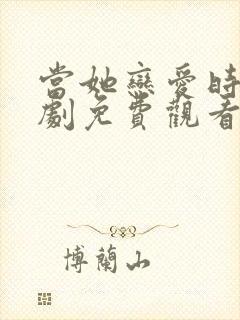 當她戀愛時
劇免費觀看
博蘭山